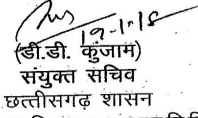 19-1-18
(डी.डी. कुंजाम)
संयुक्त सचिव
छत्तीसगढ़ शासन